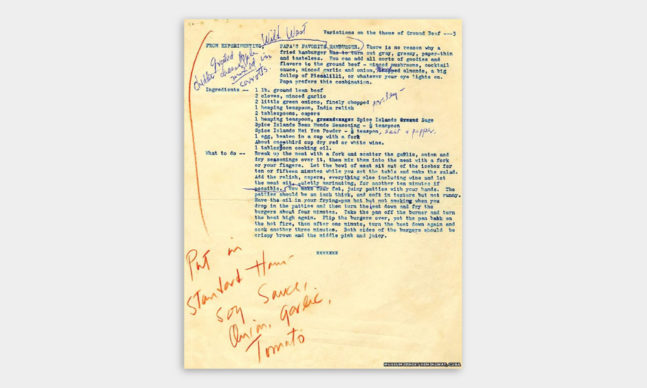 Variations on the theme of Ground Beef ---3
Wild West
FROM EXPERIMENTING: PAPA'S FAVORITE HAMBURGER. There is no reason why a
fried hamburger has to turn out gray, greasy, paper-thin
and tasteless. You can add all sorts of goodies and
flavors to the ground beef - minced mushrooms, cocktail
sauce, minced garlic and onion, chopped almonds, a big
dollop of Piccadilli, or whatever your eye lights on.
Papa prefers this combination.
Grated apple
cheese
in
carrots
Ingredients -- 1 lb. ground lean beef
2 cloves, minced garlic
2 little green onions, finely chopped parsley
1 heaping teaspoon, India relish
2 tablespoons, capers
1 heaping teaspoon, Spice Islands Sage
Spice Islands Beau Monde Seasoning - ½ teaspoon
Spice Islands Mei Yen Powder - ½ teaspoon, salt & pepper.
1 egg, beaten in a cup with a fork
About one-third cup dry red or white wine.
1 tablespoon cooking oil.
What to do -- Break up the meat with a fork and scatter the garlic, onion and
dry seasonings over it, then mix them into the meat with a fork
or your fingers. Let the bowl of meat sit out of the icebox for
ten or fifteen minutes while you set the table and make the salad.
Add the relish, capers, everything else including wine and let
the meat sit, quietly marinating, for another ten minutes if
possible. You make four fat, juicy patties with your hands. The
patties should be an inch thick, and soft in texture but not runny.
Have the oil in your frying-pan hot but not smoking when you
drop in the patties and then turn the heat down and fry the
burgers about four minutes. Take the pan off the burner and turn
the heat high again. Flip the burgers over, put the pan back on
the hot fire, then after one minute, turn the heat down again and
cook another three minutes. Both sides of the burgers should be
crispy brown and the middle pink and juicy.
Put in
Standard Ham-
Soy Sauce,
Onion, Garlic,
Tomato